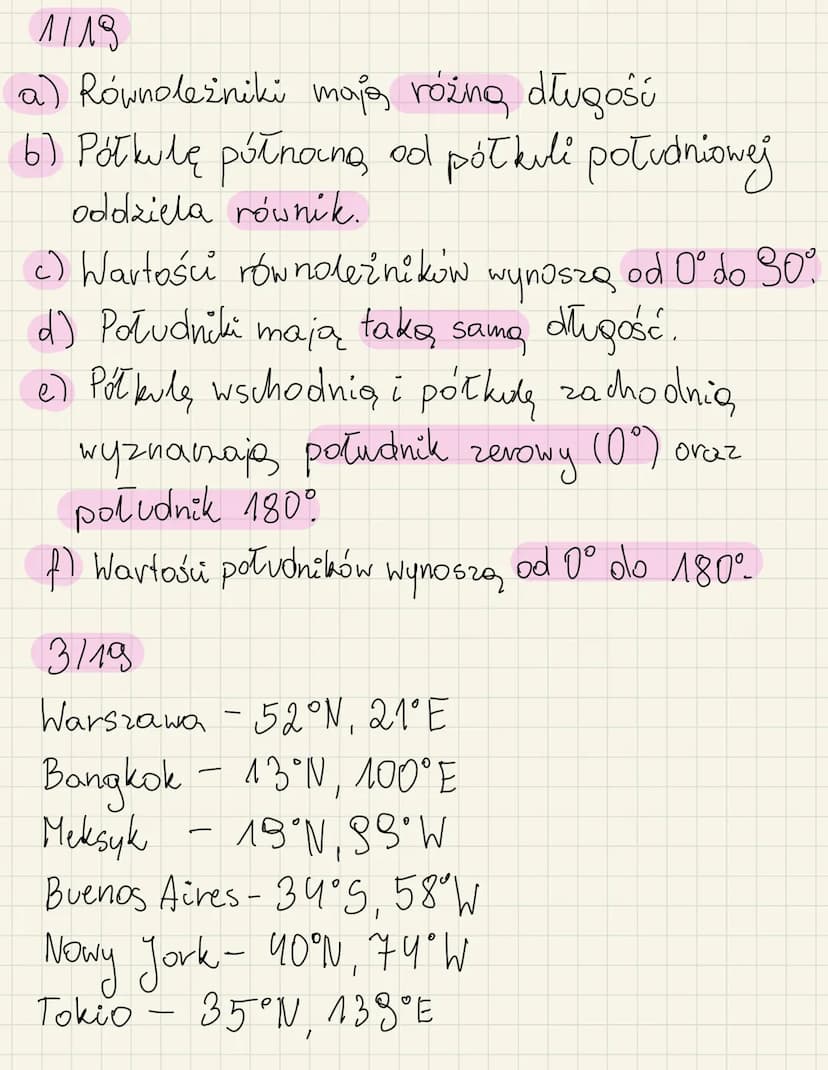 1/19
a) Równoleżniki mają różną długość
b) Półkulę północną od półkuli południowej
oddziela równik.
c) Wartości równoleżników wynoszą od 0° do 90°.
d) Południki mają taką samą długość.
e) Półkulę wschodnią i półkulę zachodnią
wyznaczają południk zerowy (0°) oraz
południk 180°.
f) Wartości południków wynoszą od 0° do 180°.
3/19
Warszawa - 52°N, 21°E
Bangkok - 13°N, 100°E
Meksyk - 19°N, 99°W
Buenos Aires - 34°S, 58°W
Nowy Jork - 40°N, 74°W
Tokio - 35°N, 139°E